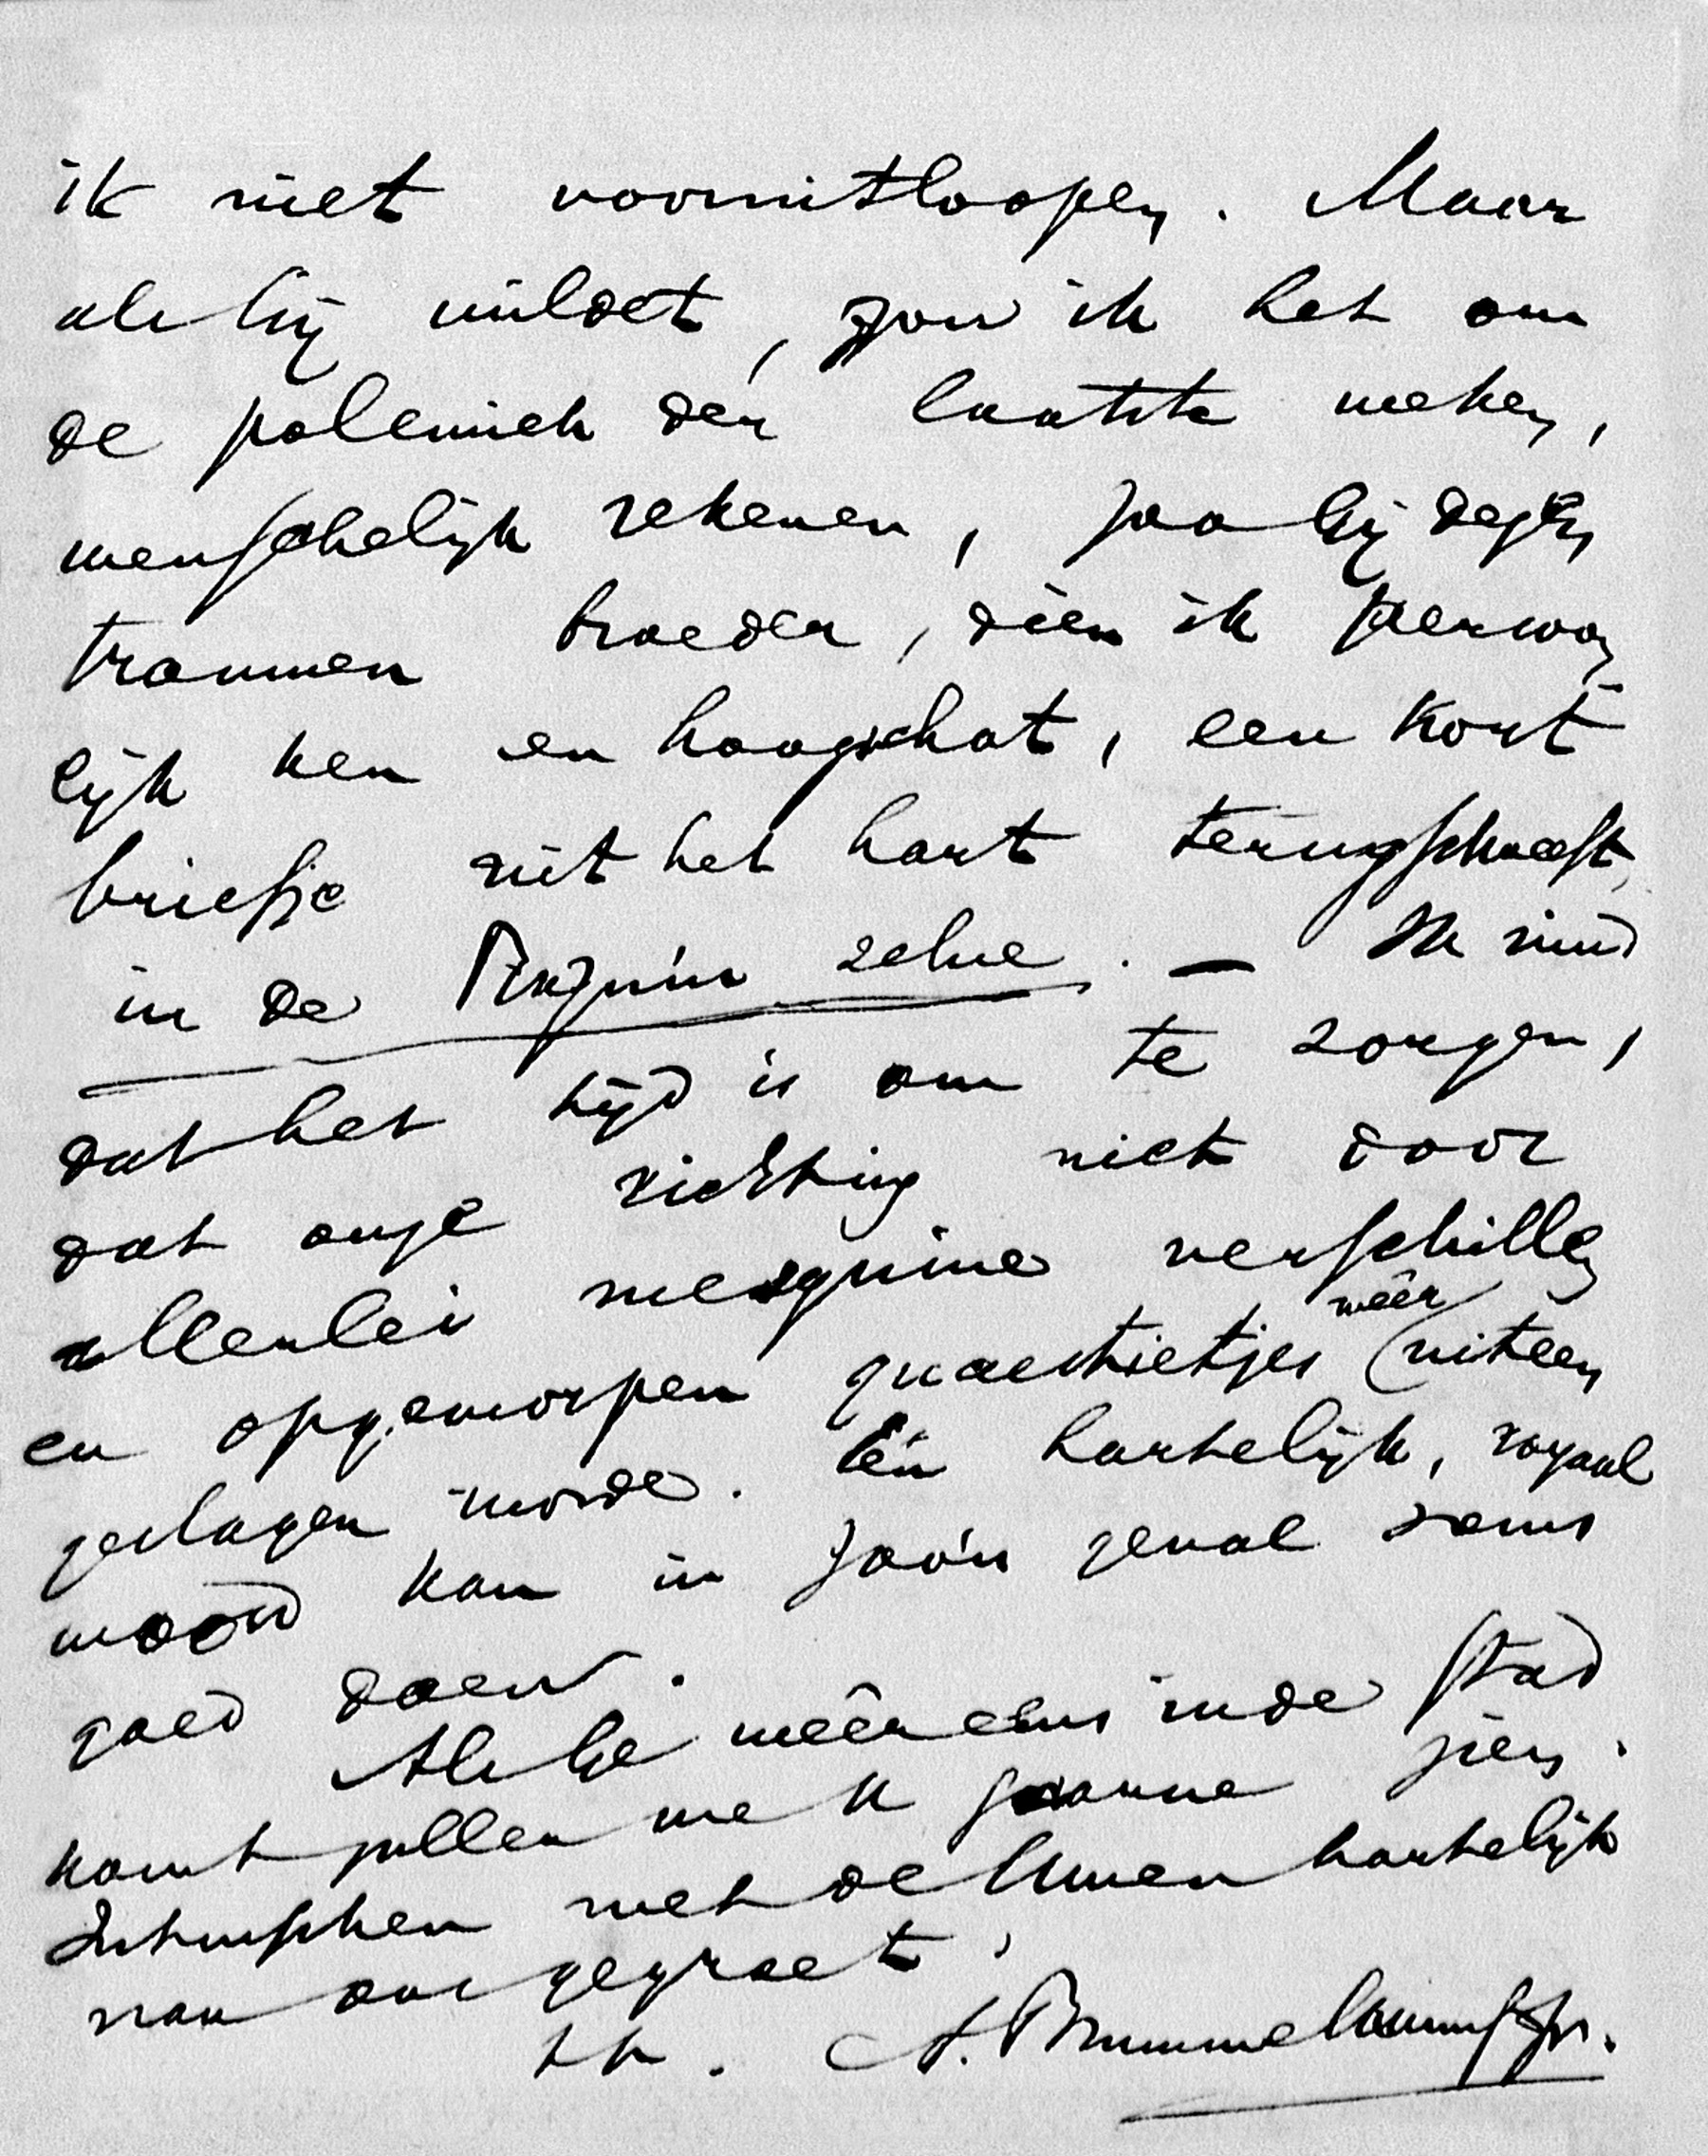 ik niet vooruitloopen. Maar
als hij mildet, zou ik het om
de polemiek der laatste weken,
menschelijk rekenen, zoo hij dezen
trouwen broeder, dien ik persoon
lijk ken en hoogschat, een kort
briefje uit het hart terugschreeft,
in de Bazuin zelve. — Ik vind
dat het tijd is om te zorgen,
dat onze richting niet door
allerlei mesquine verschillen
en opgeworpen quaestietjes wéér uiteen
geslagen worde. Eén hartelijk, royaal
woord kan in zóó'n geval soms
goed doen.
Als Ge wéér eens in de stad
komt zullen we U gaarne zien.
Intusschen met de Uwen hartelijk
van ons gegroet,
tt. A. Brummelkamp Jr.